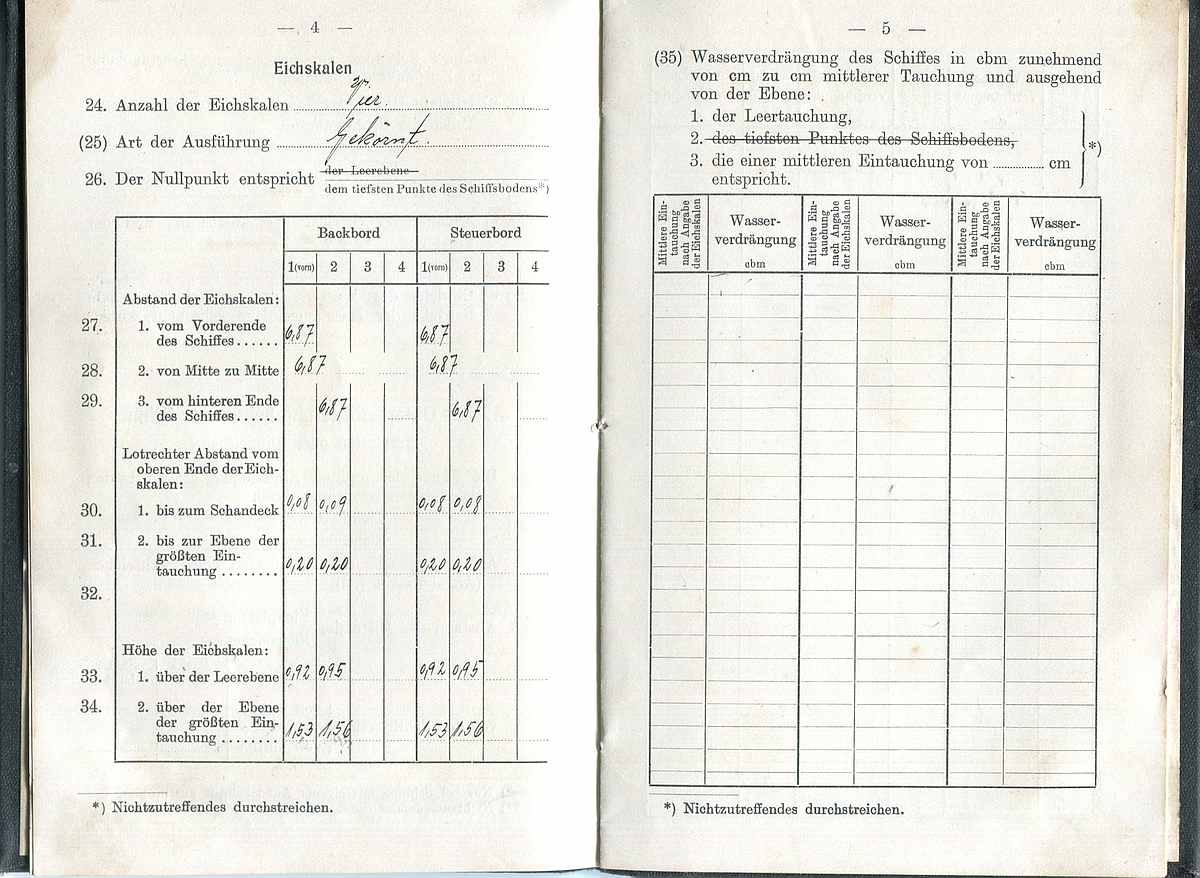 — 4 —
Eichskalen
24. Anzahl der Eichskalen Vier.
(25) Art der Ausführung Gekörnt.
26. Der Nullpunkt entspricht der Leerebene
dem tiefsten Punkte des Schiffsbodens*)
Backbord Steuerbord
1(vorn) 2 3 4 1(vorn) 2 3 4
Abstand der Eichskalen:
27. 1. vom Vorderende
des Schiffes...... 6,87 6,87
28. 2. von Mitte zu Mitte 6,87 6,87
29. 3. vom hinteren Ende
des Schiffes...... 6,87 6,87
Lotrechter Abstand vom
oberen Ende der Eich-
skalen:
30. 1. bis zum Schandeck 0,08 0,09 0,08 0,08
31. 2. bis zur Ebene der
größten Ein-
tauchung ........ 0,20 0,20 0,20 0,20
32.
Höhe der Eichskalen:
33. 1. über der Leerebene 0,92 0,95 0,92 0,95
34. 2. über der Ebene
der größten Ein-
tauchung ........ 1,53 1,56 1,53 1,56
*) Nichtzutreffendes durchstreichen.
— 5 —
(35) Wasserverdrängung des Schiffes in cbm zunehmend
von cm zu cm mittlerer Tauchung und ausgehend
von der Ebene:
1. der Leertauchung,
2. des tiefsten Punktes des Schiffsbodens,
*)
3. die einer mittleren Eintauchung von ........ cm
entspricht.
Mittlere Ein-
tauchung
nach Angabe
der Eichskalen
Wasser-
verdrängung
cbm
Mittlere Ein-
tauchung
nach Angabe
der Eichskalen
Wasser-
verdrängung
cbm
Mittlere Ein-
tauchung
nach Angabe
der Eichskalen
Wasser-
verdrängung
cbm
*) Nichtzutreffendes durchstreichen.